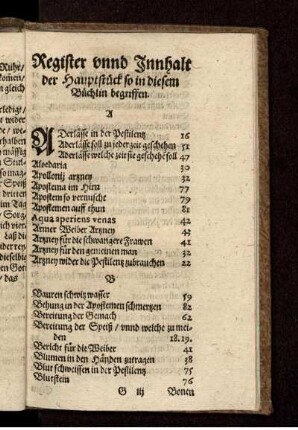 Register vnnd Innhalt
der Hauptstück so in diesem
Büchlin begriffen.
A
ADerlässe in der Pestilentz 16
Aderlässe soll zu jeder zeit geschehen 51
Aderlässe welche zeit sie geschehē soll 47
Aloebaria 30
Apollonij artzney 32
Apostema im Hirn 77
Apostem so vermischt 79
Apostemen auff thun 81
Aqua aperiens venas 42
Armer Weiber Artzney 43
Artzney für die schwangere Frawen 41
Artzney für den gemeinen man 32
Artzney wider die Pestilentz zubrauchen 22
B
Bauren schwitz wasser 59
Behung in der Apostemen schmertzen 82
Bereitung der Gemach 62
Bereitung der Speiß / vnnd welche zu mei-
den 18.19.
Bericht für die Weiber 41
Blumen in den Händen zutragen 38
Blut schweissen in der Pestilentz 75
Blutstein 76
G iij Bonen
Ruhe/
kom̄en/
gleich
wider
de / we-
mässig
so mag-
dritten
im Tag
Sorg
daß
das